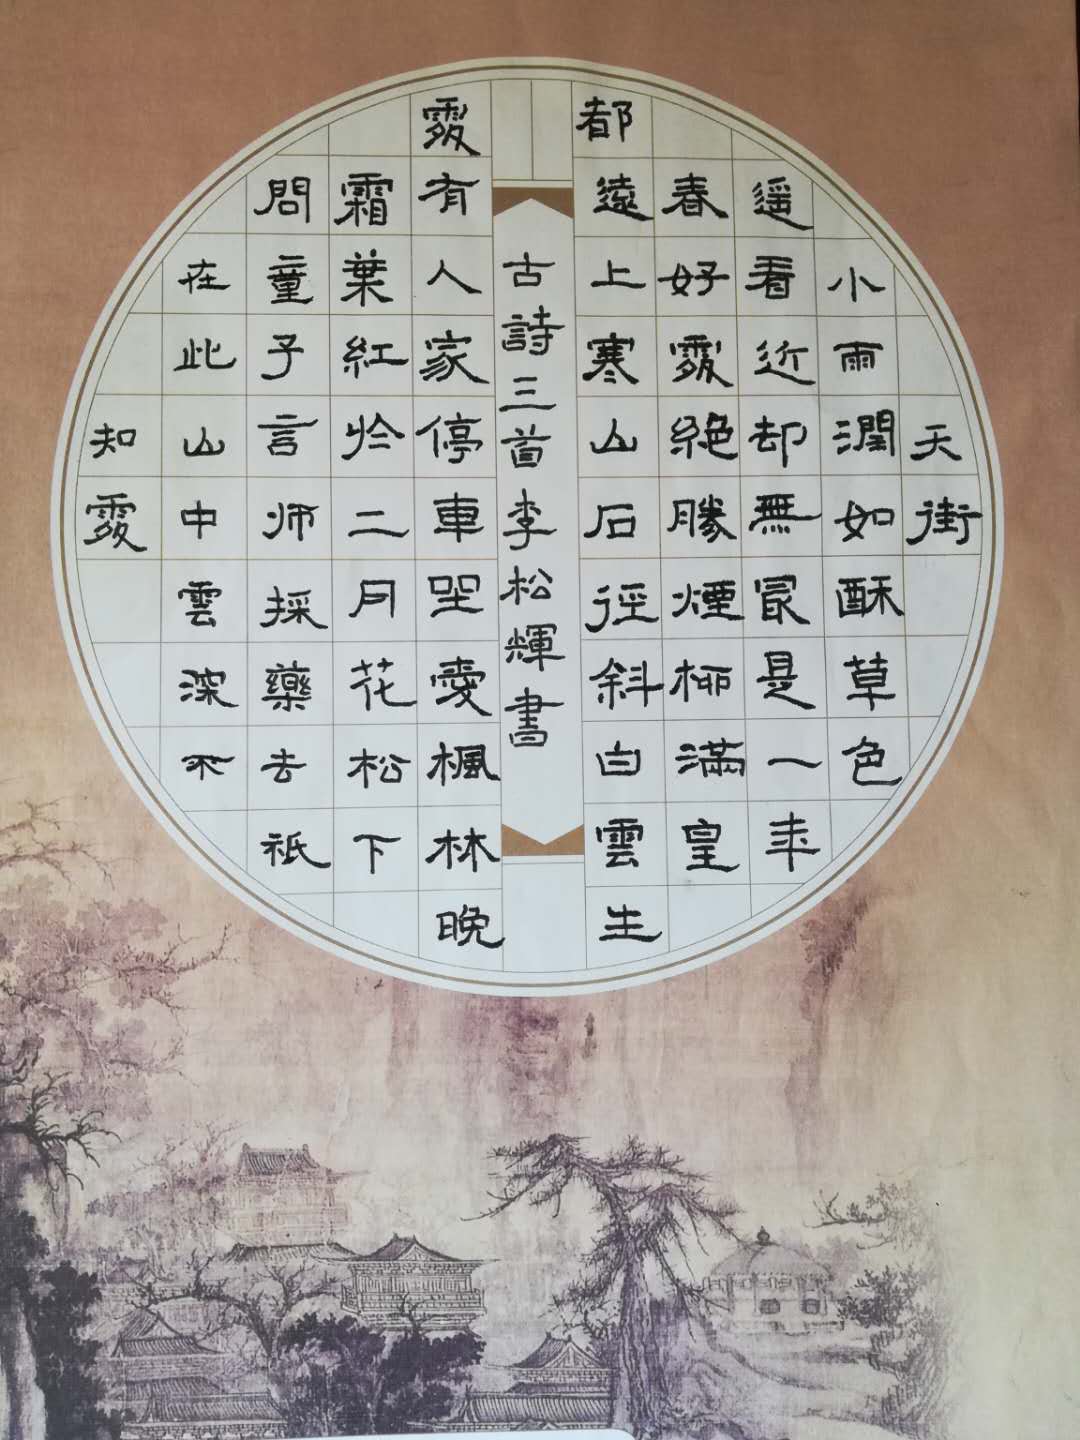 天街
小雨潤如酥草色
遥看近却無冣是一年
春好處絕勝煙柳滿皇
都遠上寒山石徑斜白雲生
古詩三首李松輝書
處有人家停車坐愛楓林晚
霜葉紅於二月花松下
問童子言师採藥去祇
在此山中雲深不
知處